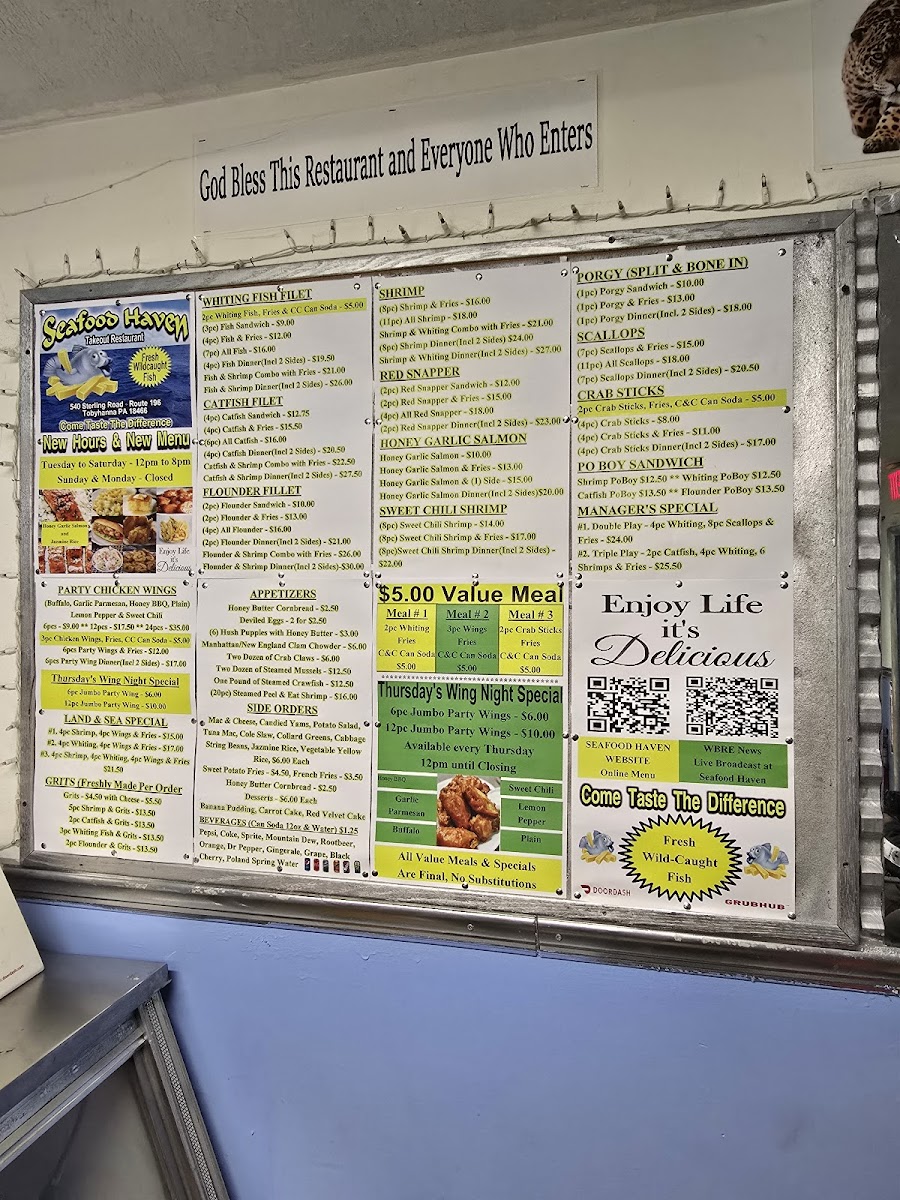 God Bless This Restaurant and Everyone Who Enters
Seafood Haven
Takeout Restaurant
Fresh
Wildcaught
Fish
540 Sterling Road - Route 196
Tobyhanna PA 18466
Come Taste The Difference
New Hours & New Menu
Tuesday to Saturday - 12pm to 8pm
Sunday & Monday - Closed
Honey Garlic Salmon
and
Jasmine Rice
Enjoy Life
it's
Delicious
PARTY CHICKEN WINGS
(Buffalo, Garlic Parmesan, Honey BBQ, Plain)
Lemon Pepper & Sweet Chili
6pcs - $9.00 ** 12pcs - $17.50 ** 24pcs - $35.00
3pc Chicken Wings, Fries, CC Can Soda - $5.00
6pcs Party Wings & Fries - $12.00
6pcs Party Wing Dinner(Incl 2 Sides) - $17.00
Thursday's Wing Night Special
6pc Jumbo Party Wing - $6.00
12pc Jumbo Party Wing - $10.00
LAND & SEA SPECIAL
#1. 4pc Shrimp, 4pc Wings & Fries - $15.00
#2. 4pc Whiting, 4pc Wings & Fries - $17.00
#3. 4pc Shrimp, 4pc Whiting, 4pc Wings & Fries
$21.50
GRITS (Freshly Made Per Order
Grits - $4.50 with Cheese - $5.50
5pc Shrimp & Grits - $13.50
2pc Catfish & Grits - $13.50
3pc Whiting Fish & Grits - $13.50
2pc Flounder & Grits - $13.50
WHITING FISH FILET
2pc Whiting Fish, Fries & CC Can Soda - $5.00
(3pc) Fish Sandwich - $9.00
(4pc) Fish & Fries - $12.00
(7pc) All Fish - $16.00
(4pc) Fish Dinner(Incl 2 Sides) - $19.50
Fish & Shrimp Combo with Fries - $21.00
Fish & Shrimp Dinner(Incl 2 Sides) - $26.00
CATFISH FILET
(4pc) Catfish Sandwich - $12.75
(4pc) Catfish & Fries - $15.50
(6pc) All Catfish - $16.00
(4pc) Catfish Dinner(Incl 2 Sides) - $20.50
Catfish & Shrimp Combo with Fries - $22.50
Catfish & Shrimp Dinner(Incl 2 Sides) - $27.50
FLOUNDER FILLET
(2pc) Flounder Sandwich - $10.00
(2pc) Flounder & Fries - $13.00
(4pc) All Flounder - $16.00
(2pc) Flounder Dinner(Incl 2 Sides) - $21.00
Flounder & Shrimp Combo with Fries - $26.00
Flounder & Shrimp Dinner(Incl 2 Sides)-$30.00
APPETIZERS
Honey Butter Cornbread - $2.50
Deviled Eggs - 2 for $2.50
(6) Hush Puppies with Honey Butter - $3.00
Manhattan/New England Clam Chowder - $6.00
Two Dozen of Crab Claws - $6.00
Two Dozen of Steamed Mussels - $12.50
One Pound of Steamed Crawfish - $12.50
(20pc) Steamed Peel & Eat Shrimp - $16.00
SIDE ORDERS
Mac & Cheese, Candied Yams, Potato Salad,
Tuna Mac, Cole Slaw, Collard Greens, Cabbage
String Beans, Jazmine Rice, Vegetable Yellow
Rice, $6.00 Each
Sweet Potato Fries - $4.50, French Fries - $3.50
Honey Butter Cornbread - $2.50
Desserts - $6.00 Each
Banana Pudding, Carrot Cake, Red Velvet Cake
BEVERAGES (Can Soda 12oz & Water) $1.25
Pepsi, Coke, Sprite, Mountain Dew, Rootbeer,
Orange, Dr Pepper, Gingerale, Grape, Black
Cherry, Poland Spring Water
SHRIMP
(8pc) Shrimp & Fries - $16.00
(11pc) All Shrimp - $18.00
Shrimp & Whiting Combo with Fries - $21.00
(8pc) Shrimp Dinner(Incl 2 Sides) $24.00
Shrimp & Whiting Dinner(Incl 2 Sides) - $27.00
RED SNAPPER
(2pc) Red Snapper Sandwich - $12.00
(2pc) Red Snapper & Fries - $15.00
(4pc) All Red Snapper - $18.00
(2pc) Red Snapper Dinner(Incl 2 Sides) - $23.00
HONEY GARLIC SALMON
Honey Garlic Salmon - $10.00
Honey Garlic Salmon & Fries - $13.00
Honey Garlic Salmon & (1) Side - $15.00
Honey Garlic Salmon Dinner(Incl 2 Sides)$20.00
SWEET CHILI SHRIMP
(8pc) Sweet Chili Shrimp - $14.00
(8pc) Sweet Chili Shrimp & Fries - $17.00
(8pc)Sweet Chili Shrimp Dinner(Incl 2 Sides) -
$22.00
$5.00 Value Meal
Meal # 1
2pc Whiting
Fries
C&C Can Soda
$5.00
Meal # 2
3pc Wings
Fries
C&C Can Soda
$5.00
Meal # 3
2pc Crab Sticks
Fries
C&C Can Soda
$5.00
Thursday's Wing Night Special
6pc Jumbo Party Wings - $6.00
12pc Jumbo Party Wings - $10.00
Available every Thursday
12pm until Closing
Honey BBQ
Garlic
Parmesan
Buffalo
Sweet Chili
Lemon
Pepper
Plain
All Value Meals & Specials
Are Final, No Substitutions
PORGY (SPLIT & BONE IN)
(1pc) Porgy Sandwich - $10.00
(1pc) Porgy & Fries - $13.00
(1pc) Porgy Dinner(Incl. 2 Sides) - $18.00
SCALLOPS
(7pc) Scallops & Fries - $15.00
(11pc) All Scallops - $18.00
(7pc) Scallops Dinner(Incl 2 Sides) - $20.50
CRAB STICKS
2pc Crab Sticks, Fries, C&C Can Soda - $5.00
(4pc) Crab Sticks - $8.00
(4pc) Crab Sticks & Fries - $11.00
(4pc) Crab Sticks Dinner(Incl 2 Sides) - $17.00
PO BOY SANDWICH
Shrimp PoBoy $12.50 ** Whiting PoBoy $12.50
Catfish PoBoy $13.50 ** Flounder PoBoy $13.50
MANAGER'S SPECIAL
#1. Double Play - 4pc Whiting, 8pc Scallops &
Fries - $24.00
#2. Triple Play - 2pc Catfish, 4pc Whiting, 6
Shrimps & Fries - $25.50
Enjoy Life
it's
Delicious
SEAFOOD HAVEN
WEBSITE
Online Menu
WBRE News
Live Broadcast at
Seafood Haven
Come Taste The Difference
Fresh
Wild-Caught
Fish
DOORDASH
GRUBHUB